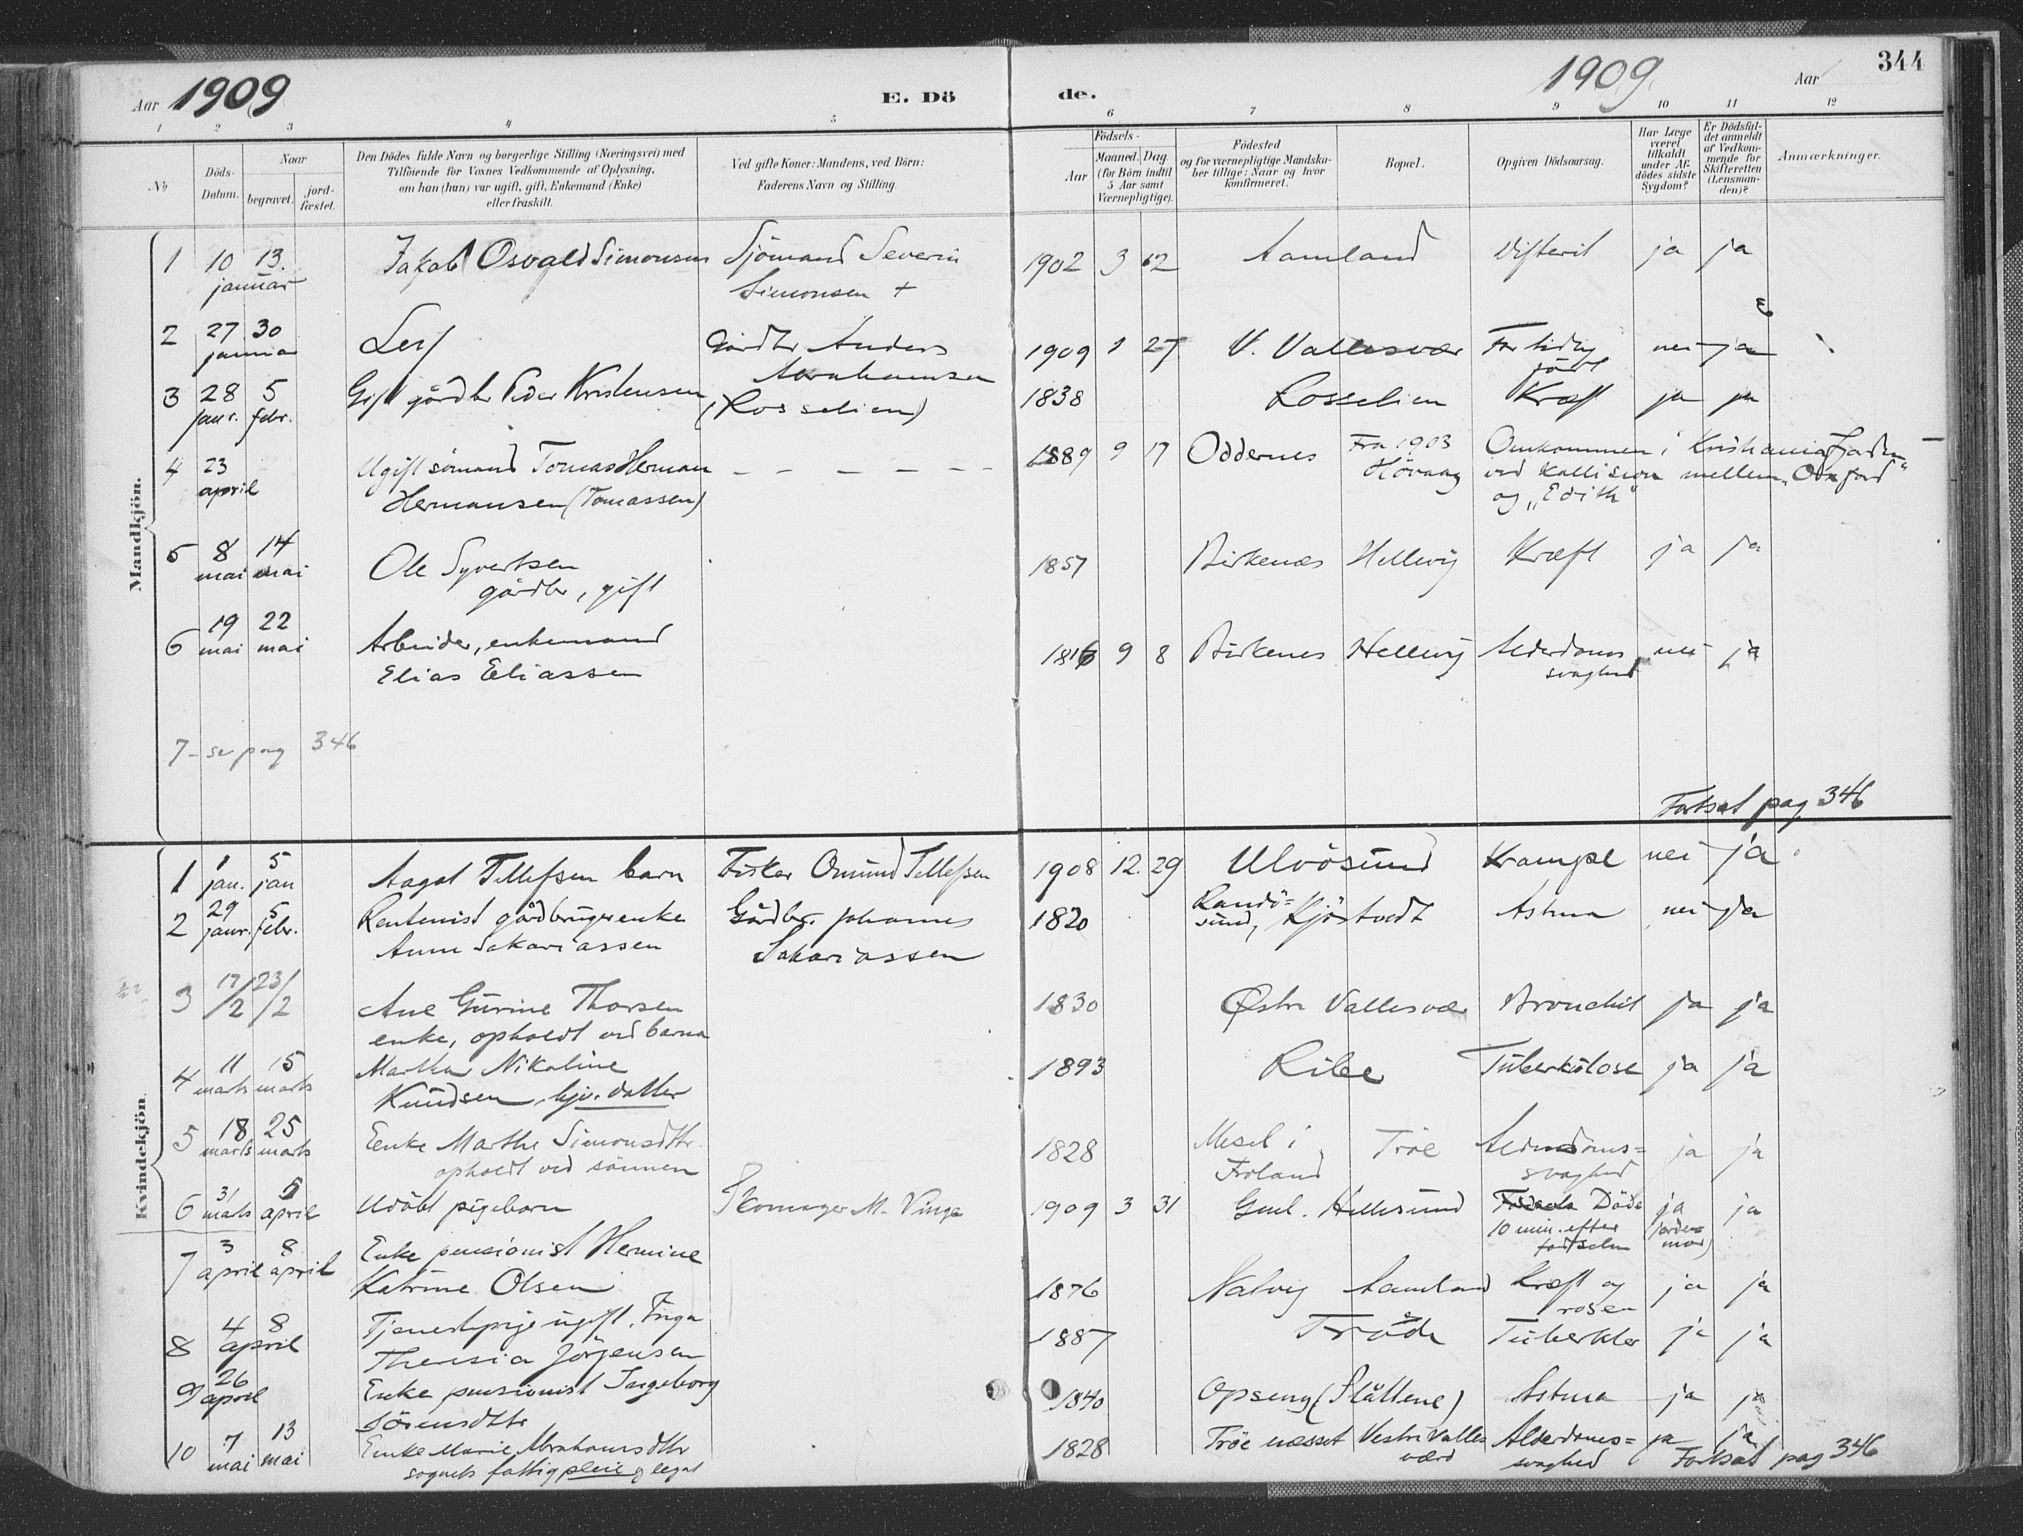 Aar 1909 E. Dö de. 1909 Aar 344
1 2 3 4 5 6 7 8 9 10 11 12
No
Döds-Datum.
Naar
begravet.
jord-fæstet.
Den Dödes fulde Navn og borgerlige Stilling (Næringsvei) med
Tilföiende for Voxnes Vedkommende af Oplysning,
om han (hun) var ugift, gift, Enkemand (Enke)
eller fraskilt.
Ved gifte Koner: Mandens, ved Börn:
Faderens Navn og Stilling.
Födsels-
Aar
Maaned. Dag
(for Börn indtil
5 Aar samt
Værnepligtige).
Födested
og for værnepligtige Mandska-
ber tillige: Naar og hvor
konfirmeret.
Bopæl.
Opgiven Dödsaarsag.
Har Læge
været
tilkaldt
under Af-
dödes sidste
Sygdom?
Er Dödsfal-
det anmeldt
af Vedkom-
mende for
Skifteretten
(Lensman-
den)?
Anmærkninger.
Mandkjön.
1 10 13. Jakob Osvald Simonsen Sjömand Severin 1902 3 12 Aamland Difterit ja ja
januar Simonsen +
2 27 30 Leif Gårdbr Anders 1909 1 27 V. Vallesvær For tidlig nei ja
januar Abrahamsen född
3 28 5 Gift gårdbr Peder Kristensen (Rosselien) 1838 Rosselien Kræft ja ja
janr. febr.
4 23 Ugift sömand Tomas Herman – – – – – – 1889 9 17 Oddernes Fra 1903 Omkommen i Kristianiafjorden
april Hermansen (Tomassen) Hövaag ved Kollision mellem „Oxford"
og „Edith"
5 8 14 Ole Syvertsen 1857 Birkenæs Hellevig Kræft ja ja
mai mai gårdbr, gift
6 19 22 Arbeider, enkemand 1816 9 8 Birkenes Hellevig Alderdoms nei ja
mai mai Elias Eliassen svaghed
7 – se pag 346
Fortsat pag 346
Kvindekjön.
1 1 5 Aagot Tellefsen barn Fisker Omund Tellefsen 1908 12. 29 Ulvösund Krampe nei ja
jan. jan
2 29 5 Rentenist gårdbrugerenke Gårdbr. Johannes 1820 Randö= Kjöstvedt Astma nei ja
janr. febr. Anne Sakariassen Sakariassen sund,
3 17/2 23/2 Ane Gurine Thorsen 1830 Østre Vallesvær Bronchit ja ja
enke, opholdt ved barna
4 11 15 Martha Nikoline 1893 Ribe Tuberkulose ja ja
marts marts Knudsen, hjv. datter
5 18 25 Enke Marthe Simonsdtr. 1828 Mesel i Tröe Alderdoms= ja ja
marts marts opholdt ved sönnen Froland svaghed
6 31 5 Udöbt pigebarn Skomager M. Vinge 1909 3 31 Gml. Hellesund Döde ja ja
marts april 10 min. efter (jorde=
födselen mor)
7 3 8 Enke pensionist Hermine
april april Katrine Olsen 1876 Nalvig Aamland Kræft og ja ja
rosen
8 4 8 Tjenestepige ugift. Inga 1887 Tröde Tuberkler ja ja
april Theresia Jörgensen
9 26 Enke pensionist Ingeborg 1840 Opseng (Slåttene) Astma ja ja
april Sörensdtr
10 7 13 Enke Marie Abrahamsdtr 1828 Tröe næsset Vestre Valles Alderdoms= ja ja
mai mai sognets fattigpleie & legat værd svaghed Fortsat pag 346